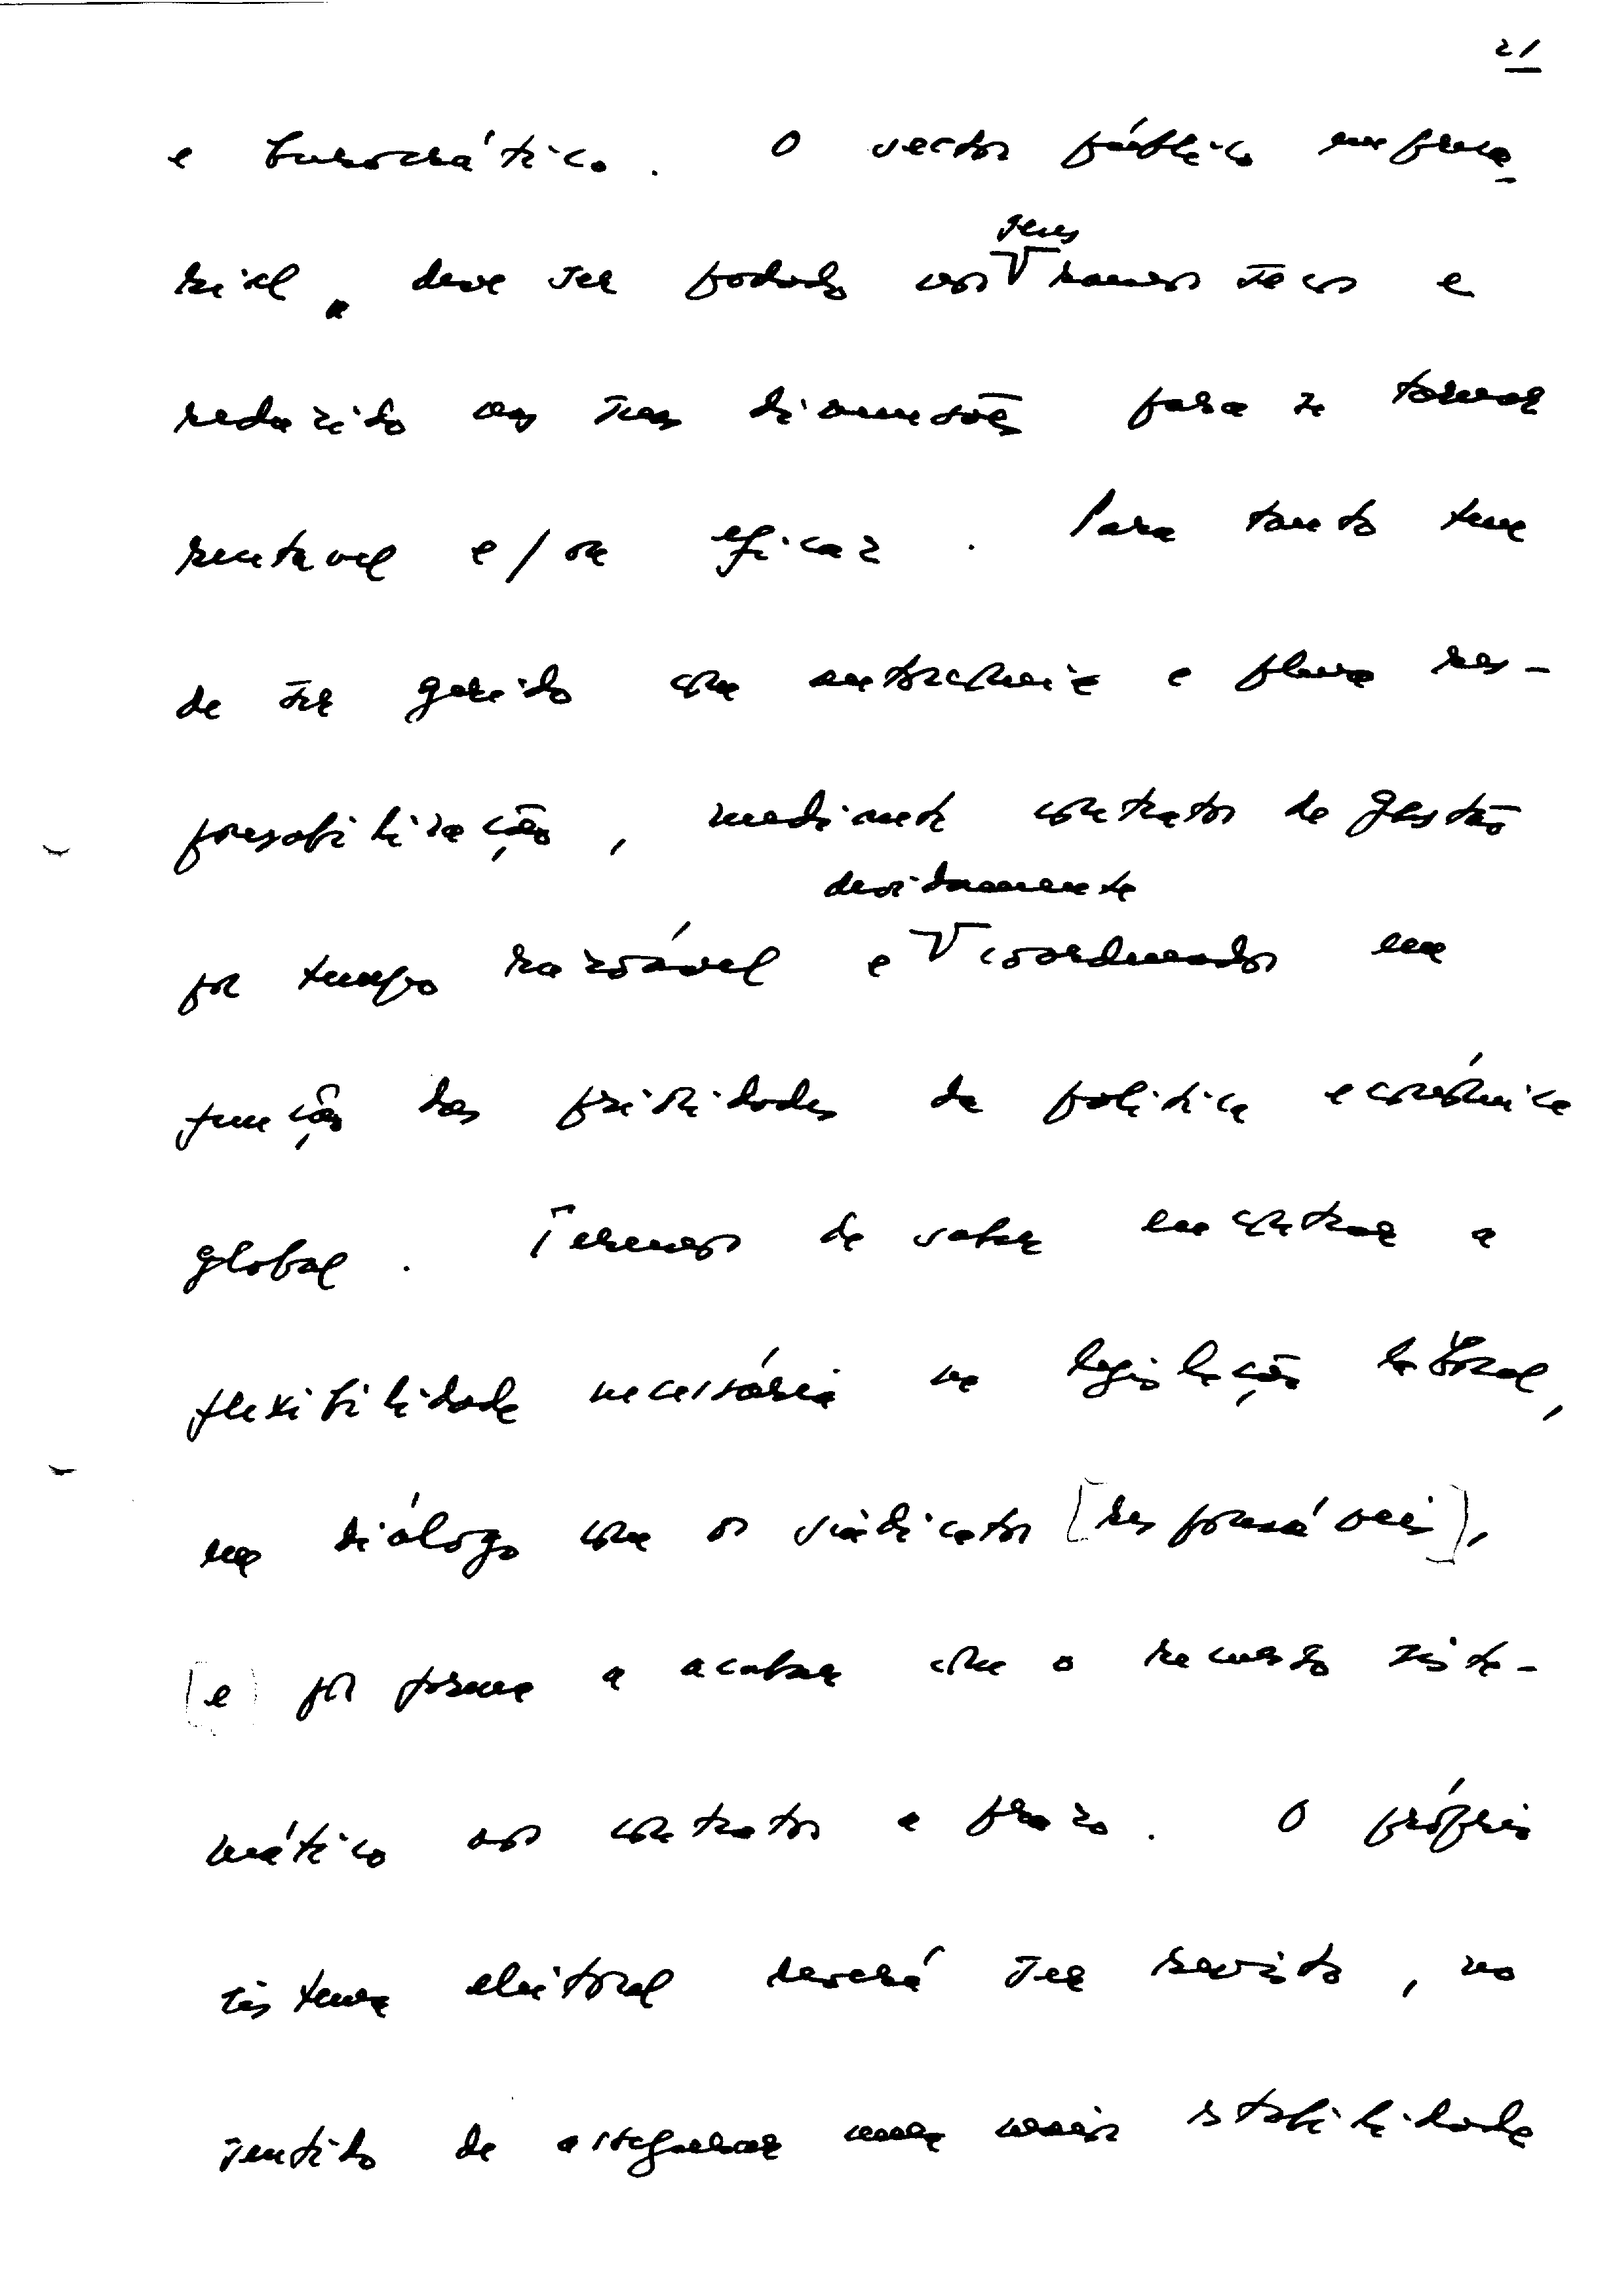 21
e burocrático. O sector público empresa-
rial deve ser podado nos seus ramos secos e
reduzido nas suas dimensões para se tornar
rentavel e/ou eficaz. Para tanto tem
de ser gerido com autonomia e plena res-
ponsabilização, mediante contratos de gestão
devidamente
por tempo razoável e coordenados em
função das prioridades da politica económica
global. Teremos de saber encontrar a
flexibilidade necessária na legislação laboral,
em diálogo com os sindicatos [responsáveis],
[e] por forma a acabar com o recurso siste-
mático aos contratos a prazo. O próprio
sistema eleitoral deverá ser revisto, no
sentido de assegurar uma maior estabilidade